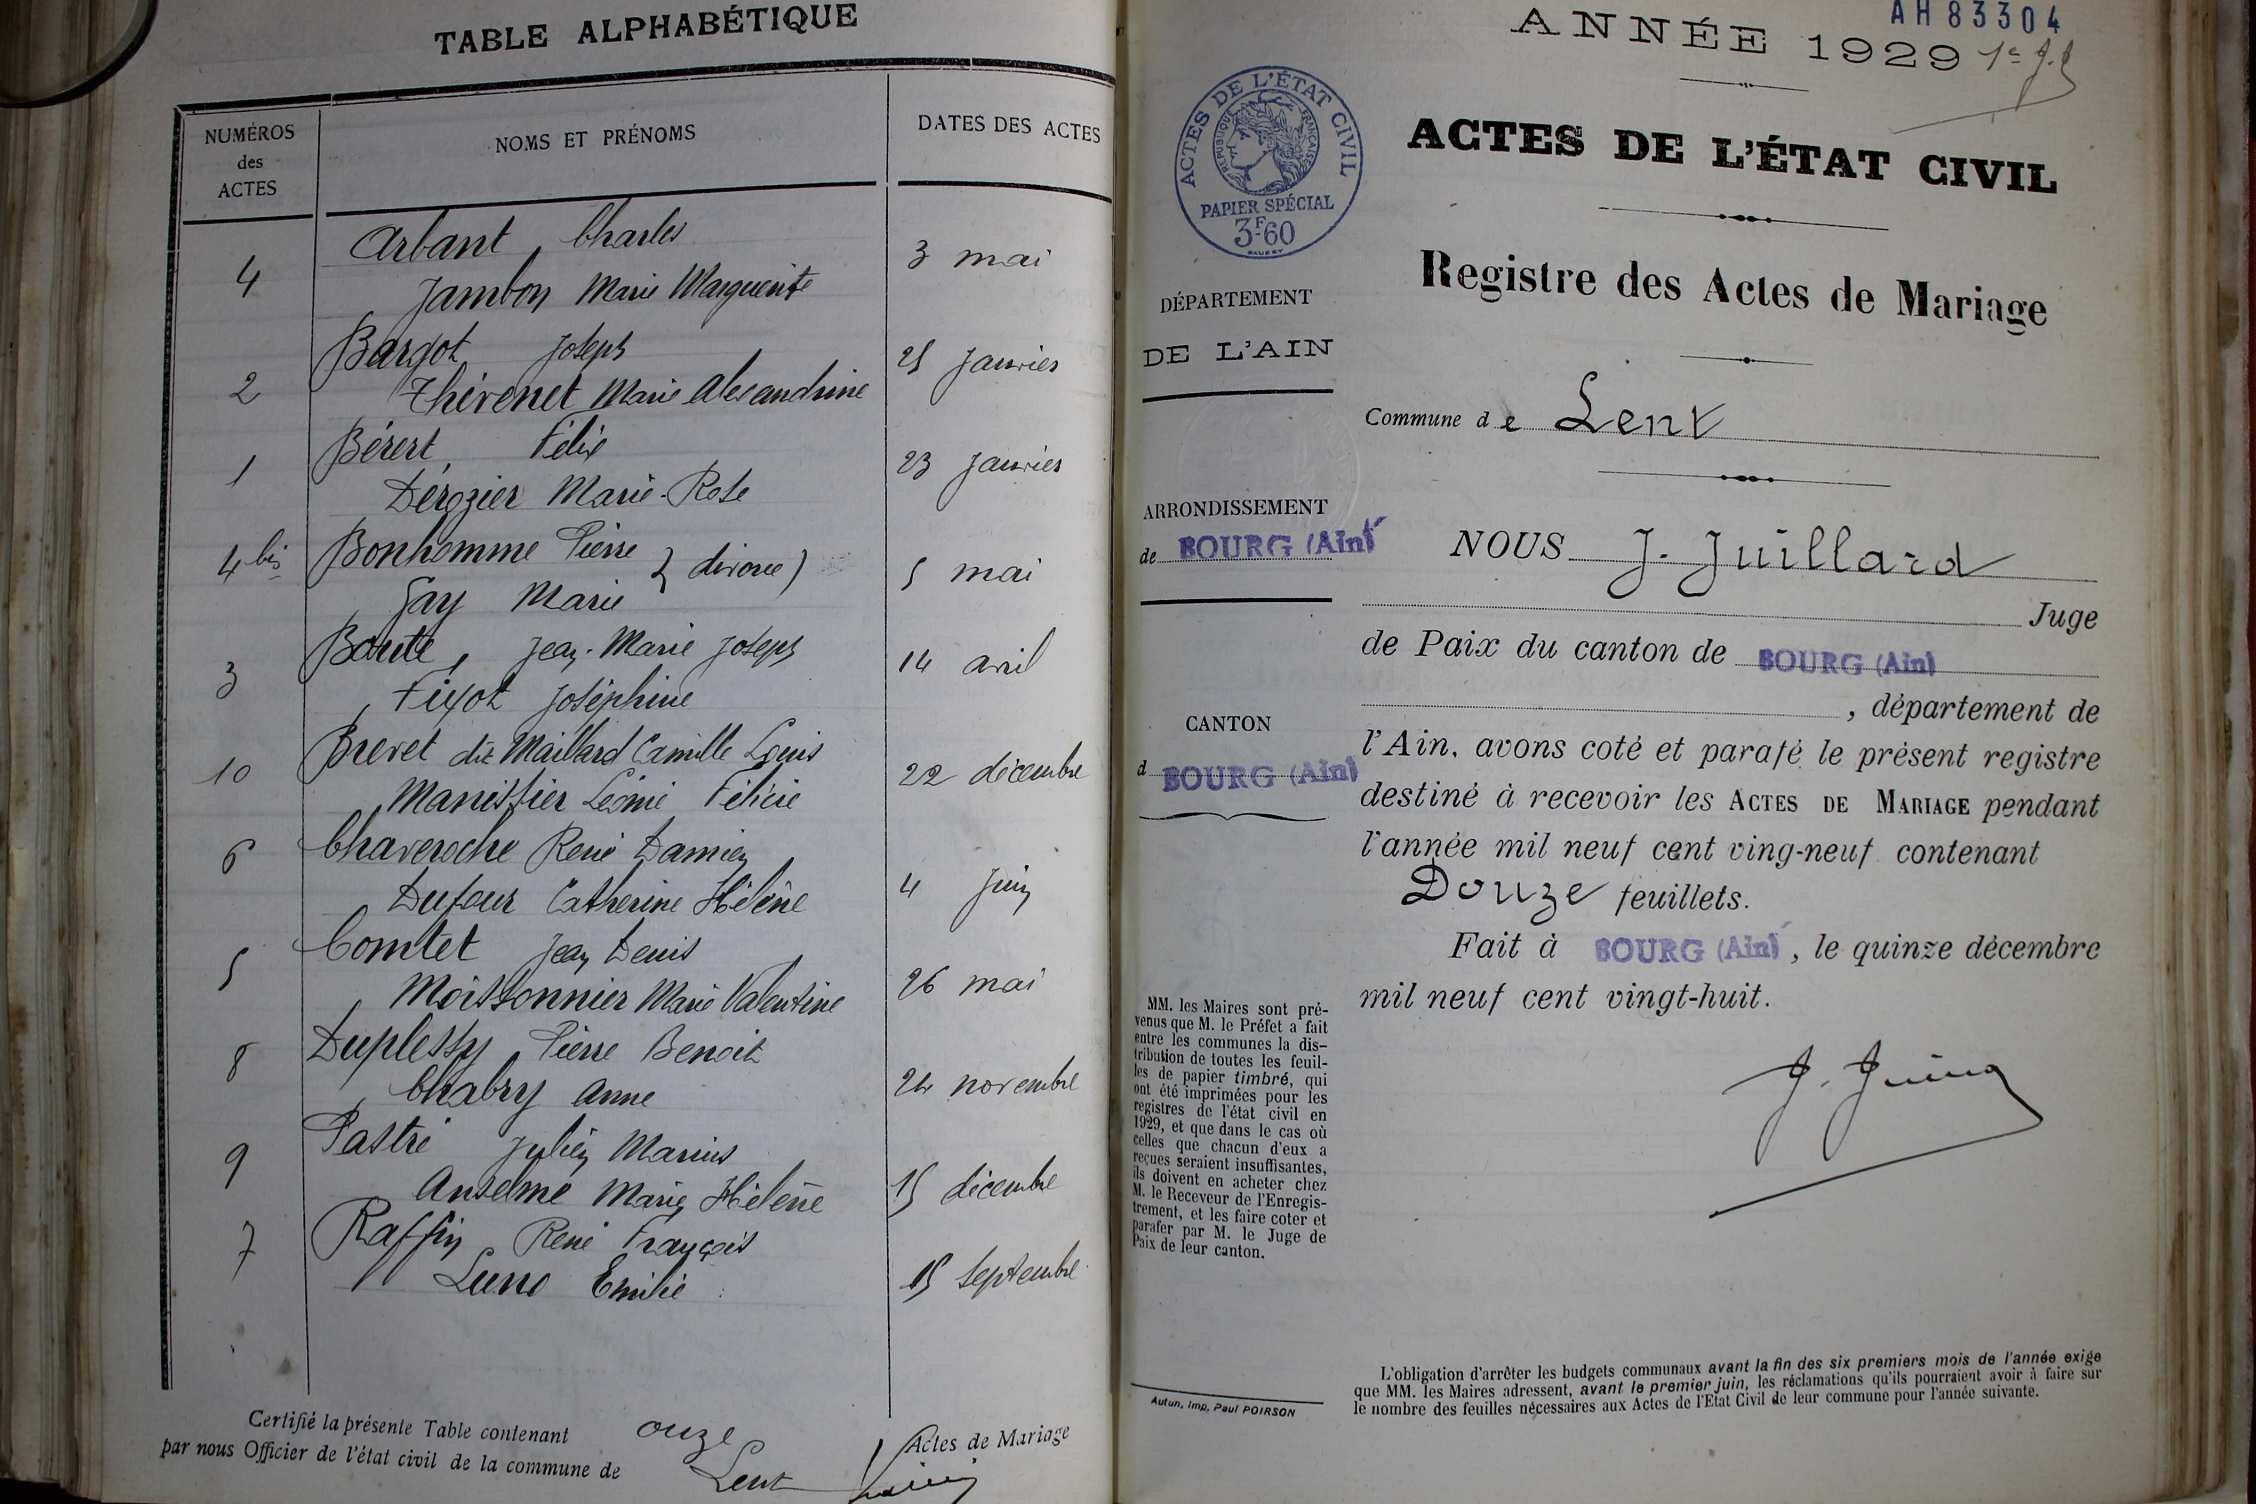 TABLE ALPHABÉTIQUE
NUMÉROS
des
ACTES
NOMS ET PRÉNOMS
DATES DES ACTES
4
Arbant Charles
Jambon Marie Marguerite
3 mai
2
Bargot Joseph
Thévenet Marie Alexandrine
25 Janvier
1
Bérert Félix
Dérozier Marie-Rose
23 Janvier
4 bis
Bonhomme Pierre
Gay Marie
(divorce)
5 mai
3
Boute Jean-Marie Joseph
Fixot Joséphine
14 avril
10
Brevet dit Maillard Camille Louis
Manissier Léonie Félicie
22 décembre
6
Chaveroche René Damien
Dufour Catherine Hélène
4 Juin
5
Comtet Jean Denis
Moissonnier Marie Valentine
26 mai
8
Duplessy Pierre Benoit
Chabry Anne
24 novembre
9
Pastré Julien Marius
Anselme Marie Hélène
15 décembre
7
Raffin René François
Luno Emilie
15 Septembre
Certifié la présente Table contenant onze Actes de Mariage
par nous Officier de l'état civil de la commune de Lent
AH83304
ANNÉE 1929
ACTES DE L'ÉTAT CIVIL
RÉPUBLIQUE FRANÇAISE
PAPIER SPÉCIAL
3F60
ACTES DE L'ÉTAT CIVIL
Registre des Actes de Mariage
DÉPARTEMENT
DE L'AIN
Commune de Lent
ARRONDISSEMENT
de BOURG (Ain)
CANTON
d BOURG (Ain)
NOUS J. Juillard
Juge
de Paix du canton de BOURG (Ain)
, département de
l'Ain, avons coté et parafé le présent registre
destiné à recevoir les ACTES DE MARIAGE pendant
l'année mil neuf cent ving-neuf contenant
Douze feuillets.
Fait à BOURG (Ain), le quinze décembre
mil neuf cent vingt-huit.
MM. les Maires sont pré-
venus que M. le Préfet a fait
entre les communes la dis-
tribution de toutes les feuil-
les de papier timbré, qui
ont été imprimées pour les
registres de l'état civil en
1929, et que dans le cas où
celles que chacun d'eux a
reçues seraient insuffisantes,
ils doivent en acheter chez
M. le Receveur de l'Enregis-
trement, et les faire coter et
parafer par M. le Juge de
Paix de leur canton.
Autun, Imp. Paul POIRSON
L'obligation d'arrêter les budgets communaux avant la fin des six premiers mois de l'année exige
que MM. les Maires adressent, avant le premier juin, les réclamations qu'ils pourraient avoir à faire sur
le nombre des feuilles nécessaires aux Actes de l'Etat Civil de leur commune pour l'année suivante.